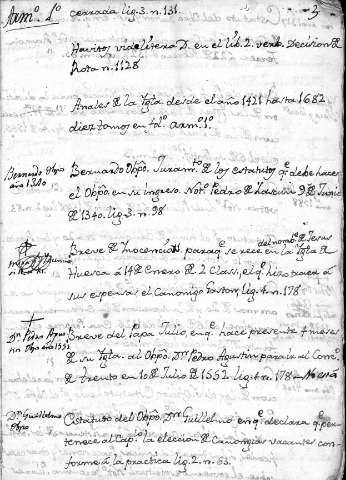 Arm.º 1.º cerrada lig. 3. n. 131.
3
Havitos vide litera D. en el lib. 2. verb. Decision de
Rota n. 1128
Anales de la Ygla desde el año 1421 hasta 1682
diez tomos en fol. arm. 1.º
Bernardo Obpo
año 1340
Bernardo Obpo. Juram.to de los estatutos q.e debe hacer
el Obpo. en su ingreso. Not.º Pedro de 9 de Junio
de 1340. lig. 3. n. 98
Breve de Inocencio paraq.e se rece en la Ygla de
del nomb.e de Jesus
Huesca á 14 de Enero de 2. Class. el q.e hizo traer á
sus espensas el Canonigo Gaston, lig. 4. n. 178
Dn. Pedro Agus
tin Obpo año 1551
Breve del Papa Julio, enq.e hace presente 4 meses
de su Ygla. al Obpo. Dn. Pedro Agustin para ir al Conc.º
de Trento en 10 de Julio de 1551. lig. 4. n. 178 – No está
Dn. Guillelmo
Obpo
Estatuto del Obpo. Dn. Guillelmo en q.e declara q.e per-
tenece al Cap.lo la eleccion de Canongias vacantes con-
forme á la práctica lig. 2. n. 63.